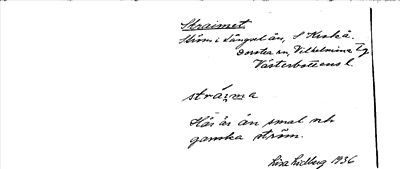 Straimet
Ström i Långselån, S Kroksj.
Dorotea sn, Vilhelmina Tg
Västerbottens l.
strázma
Här är ån smal och
ganska ström.
Lisa Lidberg 1936